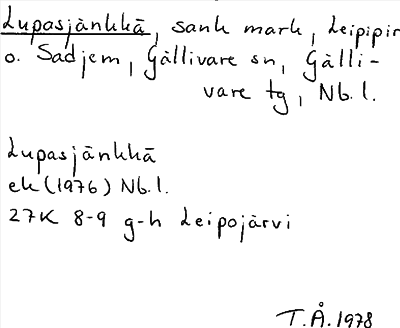 Lupasjänkkä, sank mark, Leipipir
o. Sadjem, Gällivare sn, Gälli-
vare tg, Nb.l.
Lupasjänkkä
ek (1976) Nb.l.
27K 8-9 g-h Leipojärvi
T.Å. 1978